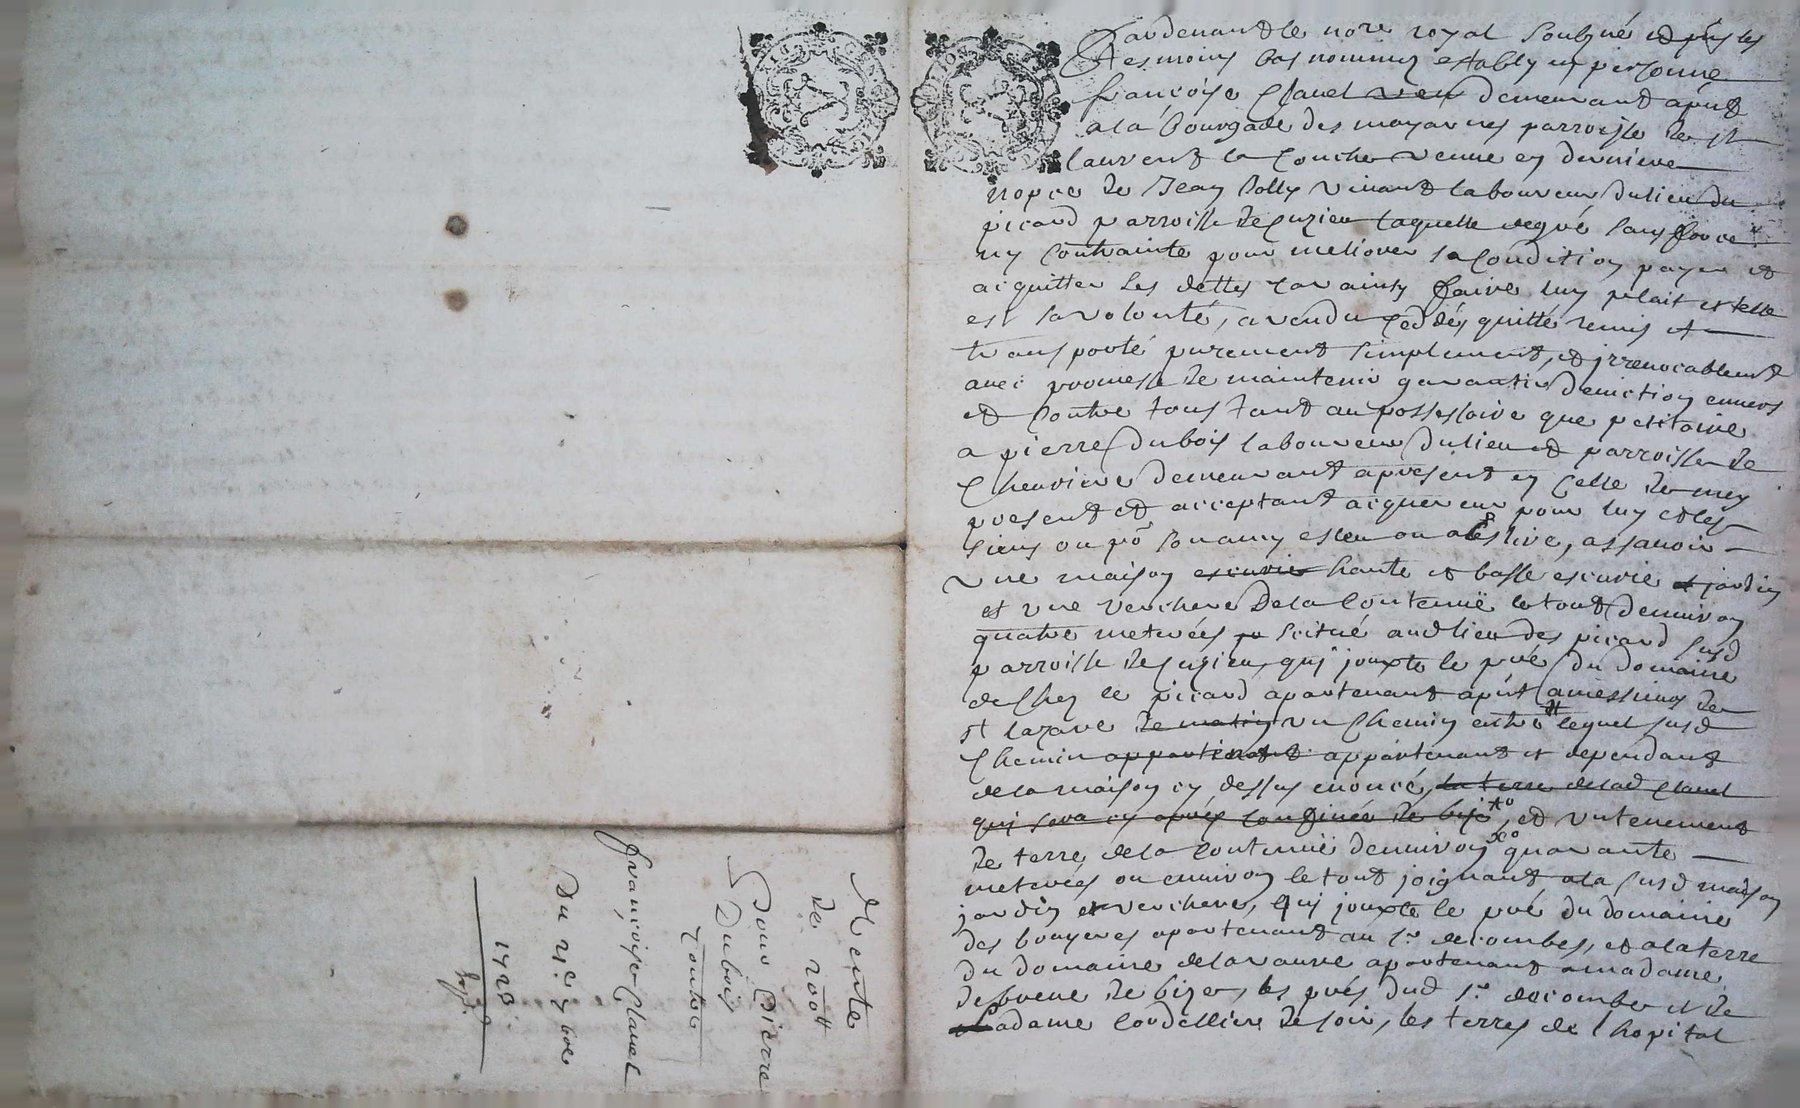 Pardevant le nore royal soubzné et psts les
tesmoins bas nommez estably en personne
françoise Clavel demeurant apnt
a la bourgade des moyannes parroisse de st
laurent la Conche veuve en derniere
nopce de Jean Polly vivant laboureur du lieu du
picard parroisse de Cuzieu laquelle de gré sans force
ny Contrainte pour meliorer sa Condition payer et
acquitter ses dettes car ainsy faire luy plait et telle
est sa volonté, a vendu ceddés quitté remis et
transporté purement simplement, et irrevocablement
avec promesse de maintenir garantir deviction envers
et Contre tous tant au possessoire que petitoire
a pierre dubois laboureur du lieu et parroisse de
Chevriere demeurant apresent en Celle de mey
present et acceptant acquereur pour luy et les
siens ou po son amy esleu ou a Eslire, assavoir
une maison escurie haute et basse escurie et jardin
et une verchere de la Contenuë le tout denviron
quatre meterées scitué audlieu des picard susd
parroisse de Cuzieu, qui jouxte le pré du domaine
de Chez le picard apartenant apnt a messieurs de
st lazare de matin un Chemin entre lequel susd
Chemin appartenant appartenant et dependant
de la maison cy dessus enoncé, la terre de lad Clavel
qui sera cy apres Confinée de bize, et un tenement
de terre de la Contenuë denviron quarante
meterées ou environ le tout joignant a la susd maison
jardin et verchere, qui jouxte le pré du domaine
des bruyeres apartenant au sr decombes, et a la terre
du domaine de lavaure apartenant a madame
de bize, les prés dud sr decombe et de
Madame Cordelliere de soir, les terres de lhopital
Vente
de 200tt
Pour Pierre
Dubois
Contre
Françoise Clavel
Du 21e 7bre
1723.